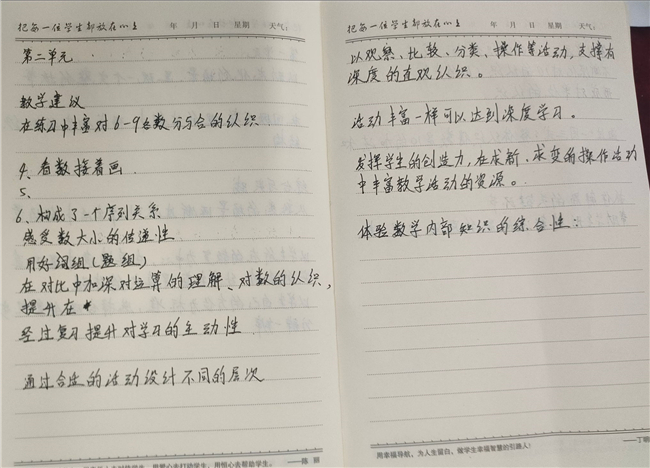 把每一位学生都放在心上 年 月 日 星期 天气:
第二单元
教学建议
在练习中丰富对6-9各数分与合的认识
4、看数接着画.
5、
6、构成了一个序列关系
感受数大小的传递性
用好词组(题组)
在对比中加深对运算的理解、对数的认识,
提升在
经过复习提升对学习的主动性
通过合适的活动设计不同的层次
用恒心去帮助学生。
把每一位学生都放在心上 年 月 日 星期 天气:
以观察、比较、分类、操作等活动,支撑有
深度的直观认识。
活动丰富一样可以达到深度学习。
发挥学生的创造力,在求新、求变的操作活动
中丰富教学活动的资源。
体验数学内部知识的综合性:
用幸福导航,为人生留白,做学生幸福智慧的引路人!